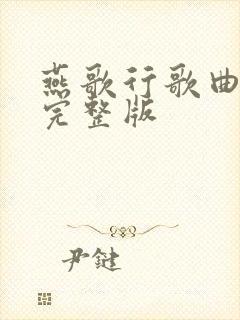 燕歌行歌曲
完整版
尹鍵